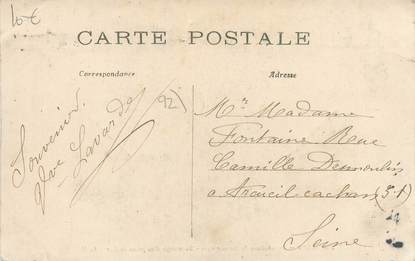 10€
CARTE POSTALE
Correspondance
Adresse
Souvenir.
Vve Lavarde
(92)
Mr Madame
Fontaine Rue
Camille Desmoulin
a Arcueil cachan (S-t)
Seine